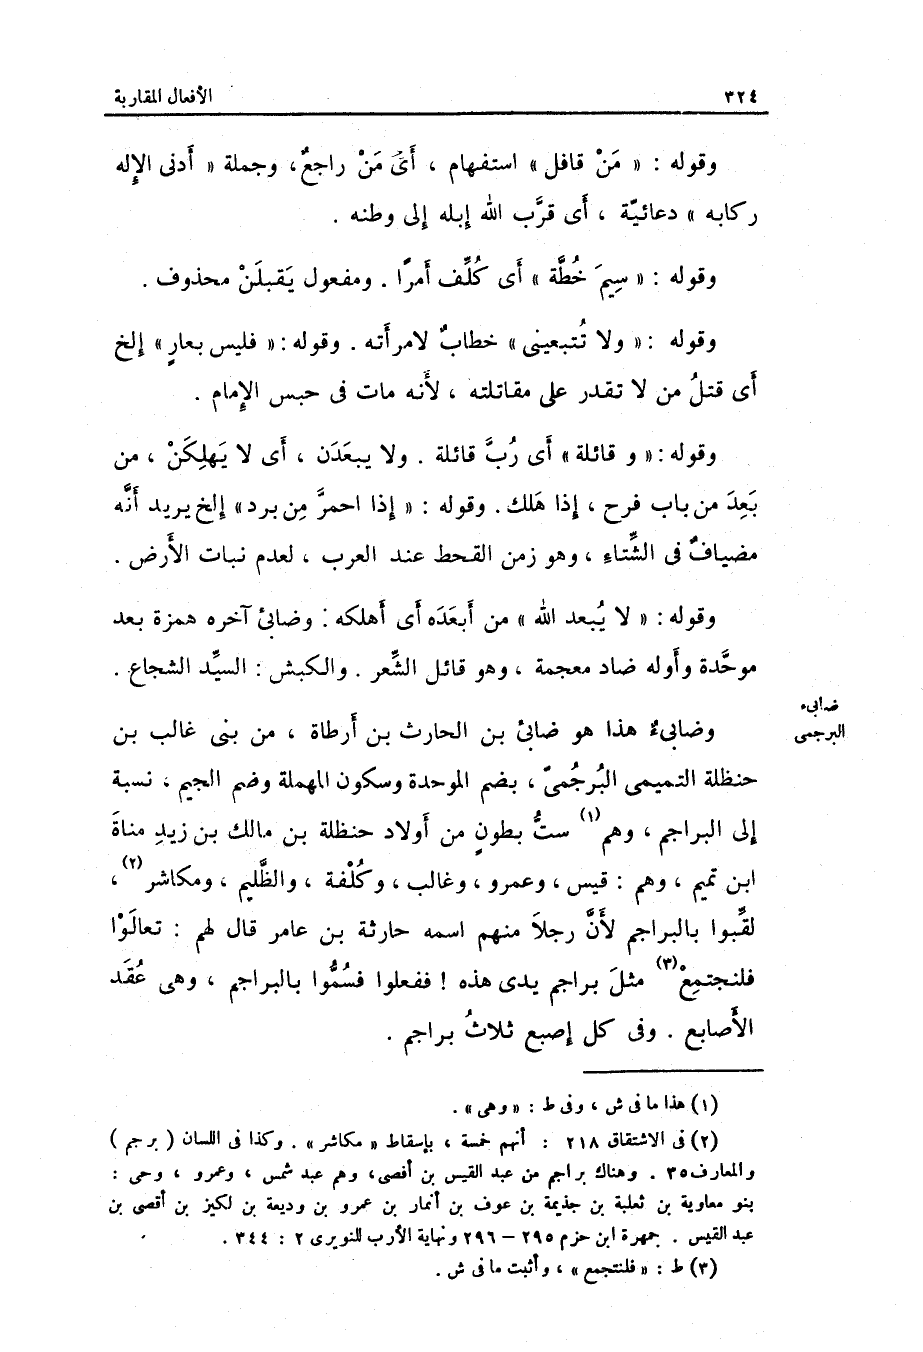 ٣٢٤ الأفعال المقاربة
وقوله : « مَنْ قافل » استفهام ، أَىْ مَنْ راجعٌ ، وجملة « أَدنى الإِله
ركابه » دعائيّة ، أَى قرَّب الله إبله إلى وطنه .
وقوله : « سِيمَ خُطَّة » أَى كُلِّف أَمرًا . ومفعول يَقبلَنْ محذوف .
وقوله : « ولا تُتبعينى » خطابٌ لامرأَته . وقوله : « فليس بعارٍ » إلخ
أَى قتلُ من لا تقدر على مقاتلته ، لأَنه مات فى حبس الإِمام .
وقوله : « و قائلة » أَى رُبَّ قائلة . ولا يبعَدَن ، أَى لا يَهلِكَنْ ، من
بَعِدَ من باب فرح ، إذا هَلك . وقوله : « إذا احمرَّ مِن برد » إلخ يريد أَنَّه
مضيافٌ فى الشِّتاءِ ، وهو زمن القحط عند العرب ، لعدم نبات الأَرض .
وقوله : « لا يُبعد الله » من أَبعَدَه أَى أَهلكه . وضابئ آخره همزة بعد
موحَّدة وأَوله ضاد معجمة ، وهو قائل الشِّعر . والكبش : السيِّد الشجاع .
ضابىء
البرجمى
وضابىءٌ هذا هو ضابئ بن الحارث بن أَرطاة ، من بنى غالب بن
حنظلة التميمى البُرجُمىّ ، بضم الموحدة وسكون المهملة وضم الجيم ، نسبة
إلى البراجم ، وهم (١) ستُّ بطونٍ من أَولاد حنظلة بن مالك بن زيدِ مناةَ
ابن تميم ، وهم : قيس ، وعمرو ، وغالب ، وكُلْفة ، والظَّليم ، ومكاشر (٢) ،
لقِّبوا بالبراجم لأَنَّ رجلاً منهم اسمه حارثة بن عامر قال لهم : تعالَوْا
فلنجتمِعْ (٣) مثلَ براجم يدى هذه ! ففعلوا فسُمُّوا بالبراجم ، وهى عُقَد
الأَصابع . وفى كل إصبع ثلاثُ براجم .
(١) هذا ما فى ش ، وفى ط : « وهى » .
(٢) فى الاشتقاق ٢١٨ : أنهم خمسة ، بإسقاط « مكاشر » . وكذا فى اللسان ( برجم )
والمعارف ٣٥ . وهناك براجم من عبد القيس بن أفصى ، وهم عبد شمس ، وعمرو ، وحى :
بنو معاوية بن ثعلبة بن جذيمة بن عوف بن أنمار بن عمرو بن وديعة بن لكيز بن أقصى بن
عبد القيس . جمهرة ابن حزم ٢٩٥ – ٢٩٦ ونهاية الأرب للنويرى ٢ : ٣٤٤ .
(٣) ط : « فلنتجمع » ، وأثبت ما فى ش .